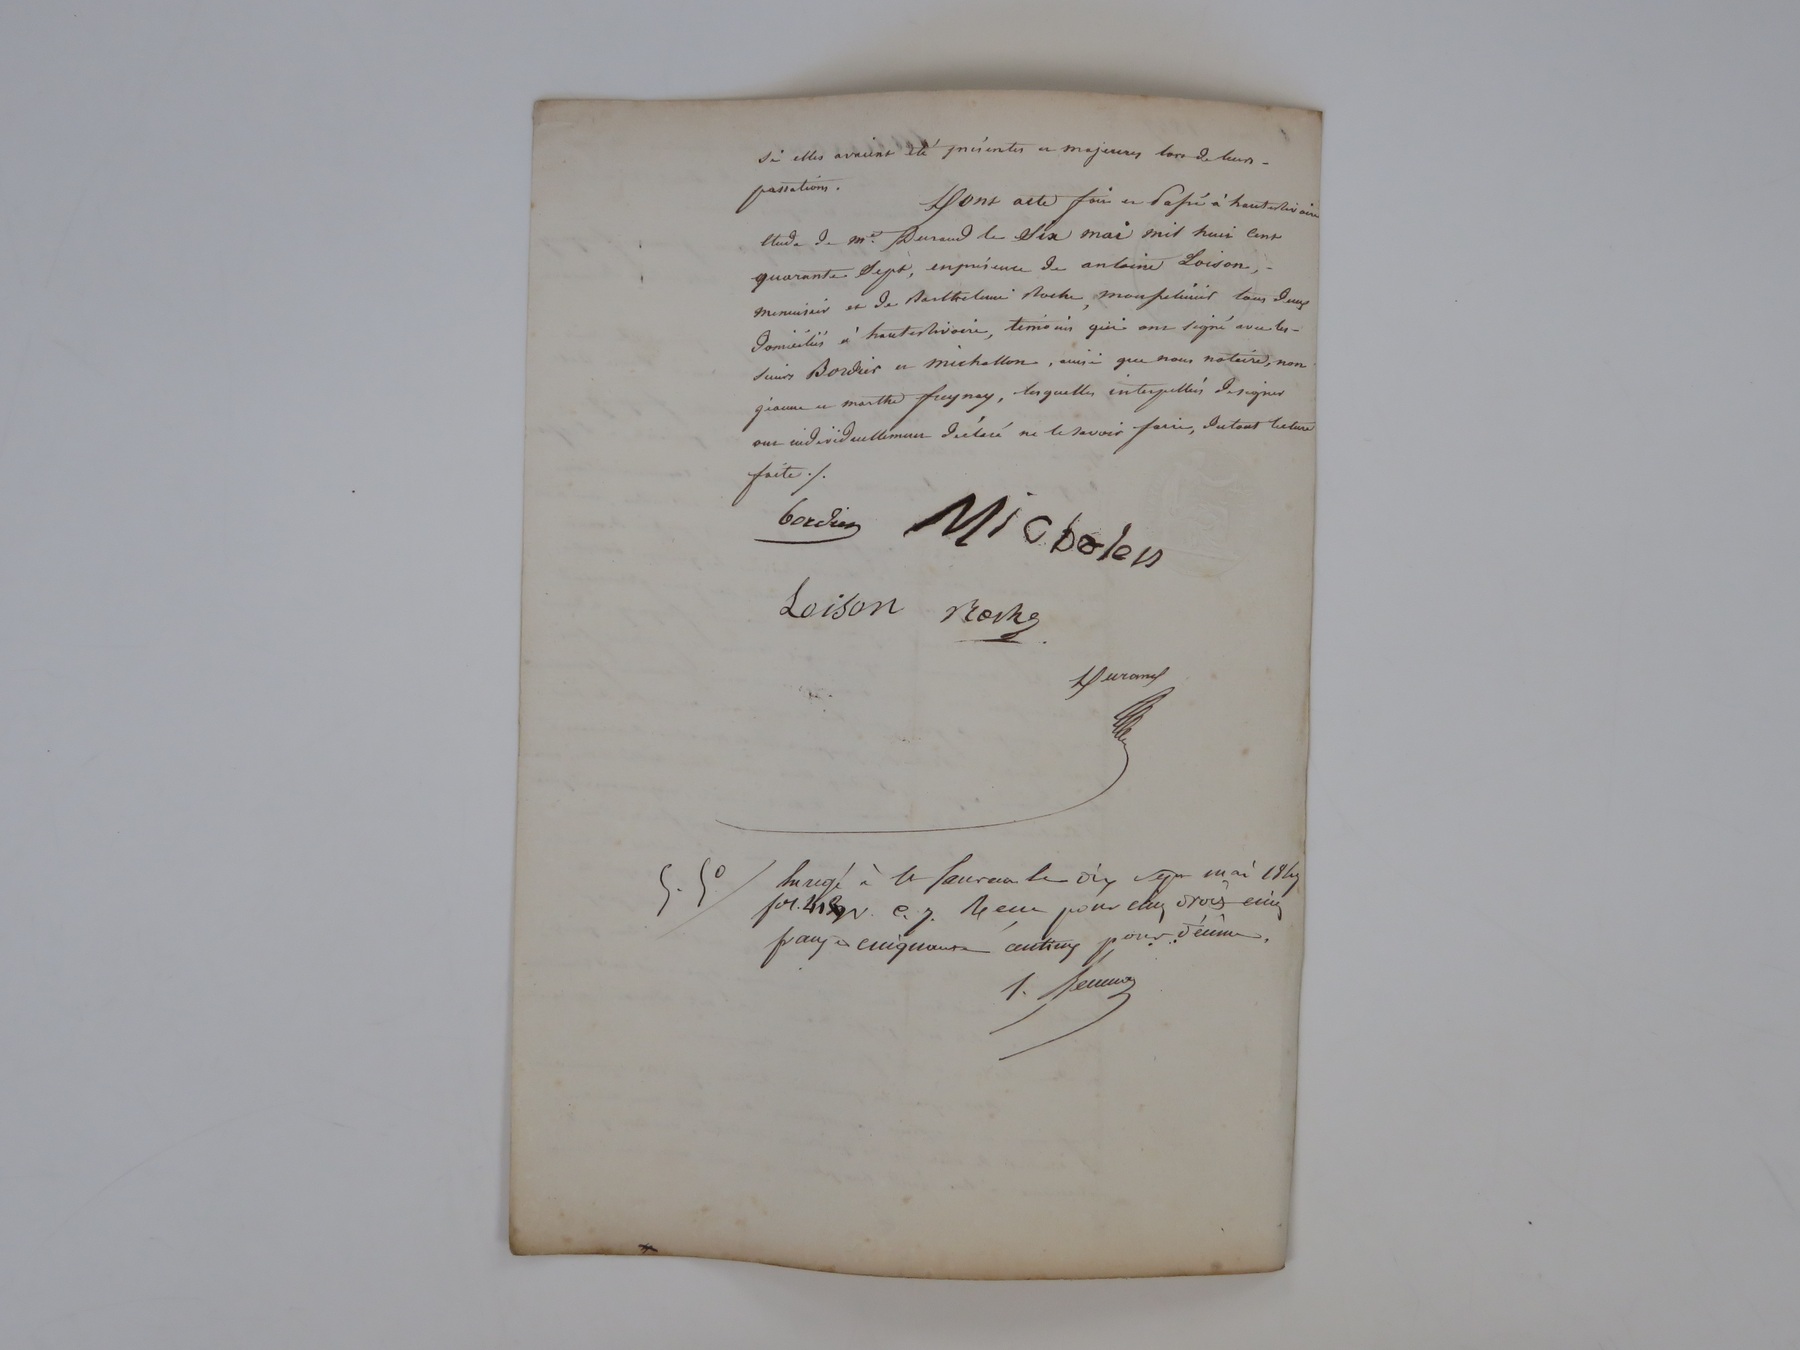 si elles avaient été présentes et majeures lors de leurs-
passations.
Dont acte fait et Passé à hauterivoire
étude de me. Durand le Six mai mil huit Cent
quarante Sept, en présence de antoine Loison,-
menuisier et de Barthelemi Roche, tous deux
Domiciliés à hauterivoire, témoins qui ont signé avec les-
sieurs Bordier et michallon, ainsi que nous notaire, non
jeanne et marthe freynay, lesquelles interpellées de signer
ont individuellement déclaré ne le savoir faire, du tout lecture
faite ./.
bordier Micholen
Loison Roche
Durand
5. 50 / Enregé à St Laurent le dix sept mai 1847
fol. v. c. 7. Reçu pour cinq droits cinq
francs cinquante centimes pour décime.